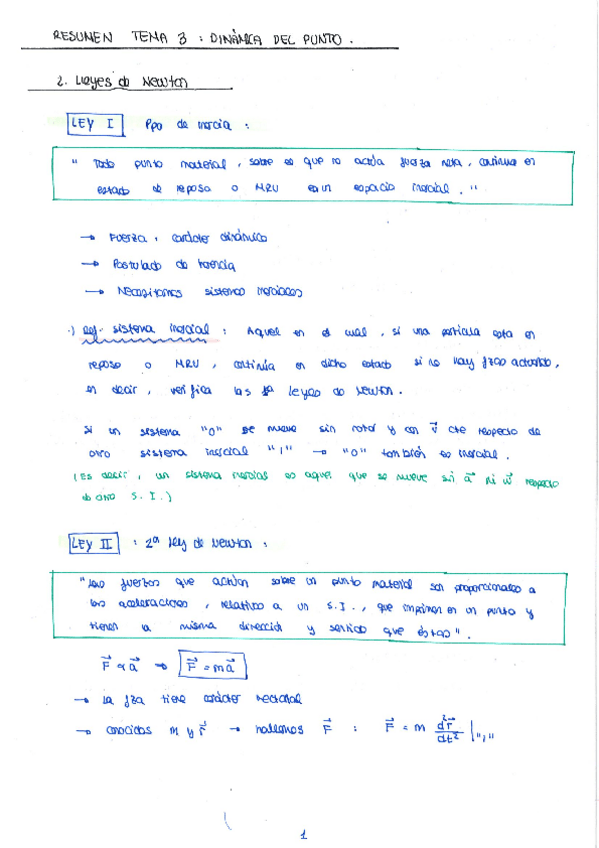 RESUMEN TEMA 3 : DINÁMICA DEL PUNTO.
2. Leyes de Newton
LEY I Ppo de inercia :
" Todo punto material, sobre el que no actúa fuerza neta, continua en
estado de reposo o MRU en un espacio inercial. "
→ Fuerza : carácter dinámico
→ Postulado de inercia
→ Necesitamos sistemas inerciales
·) Def- sistema inercial : Aquel en el cual, si una partícula esta en
reposo o MRU, continúa en dicho estado si no hay fzas actuando,
es decir, verifica las leyes de Newton.
Si un sistema "0" se mueve sin rotar y con v⃗ cte respecto de
otro sistema inercial "1" → "0" también es inercial.
(Es decir, un sistema inercial es aquel que se mueve sin a⃗ ni w⃗ respecto
de otro S.I.)
LEY II : 2ª Ley de Newton :
"Las fuerzas que actúan sobre un punto material son proporcionales a
las aceleraciones, relativas a un S.I., que imprimen en un punto y
tienen la misma dirección y sentido que éstas".
F⃗ ∝ a⃗ ⇒ F⃗ = m a⃗
→ La fza tiene carácter vectorial
→ conocidas m y r⃗ → hallamos F⃗ : F⃗ = m d²r⃗/dt² |"1"
1